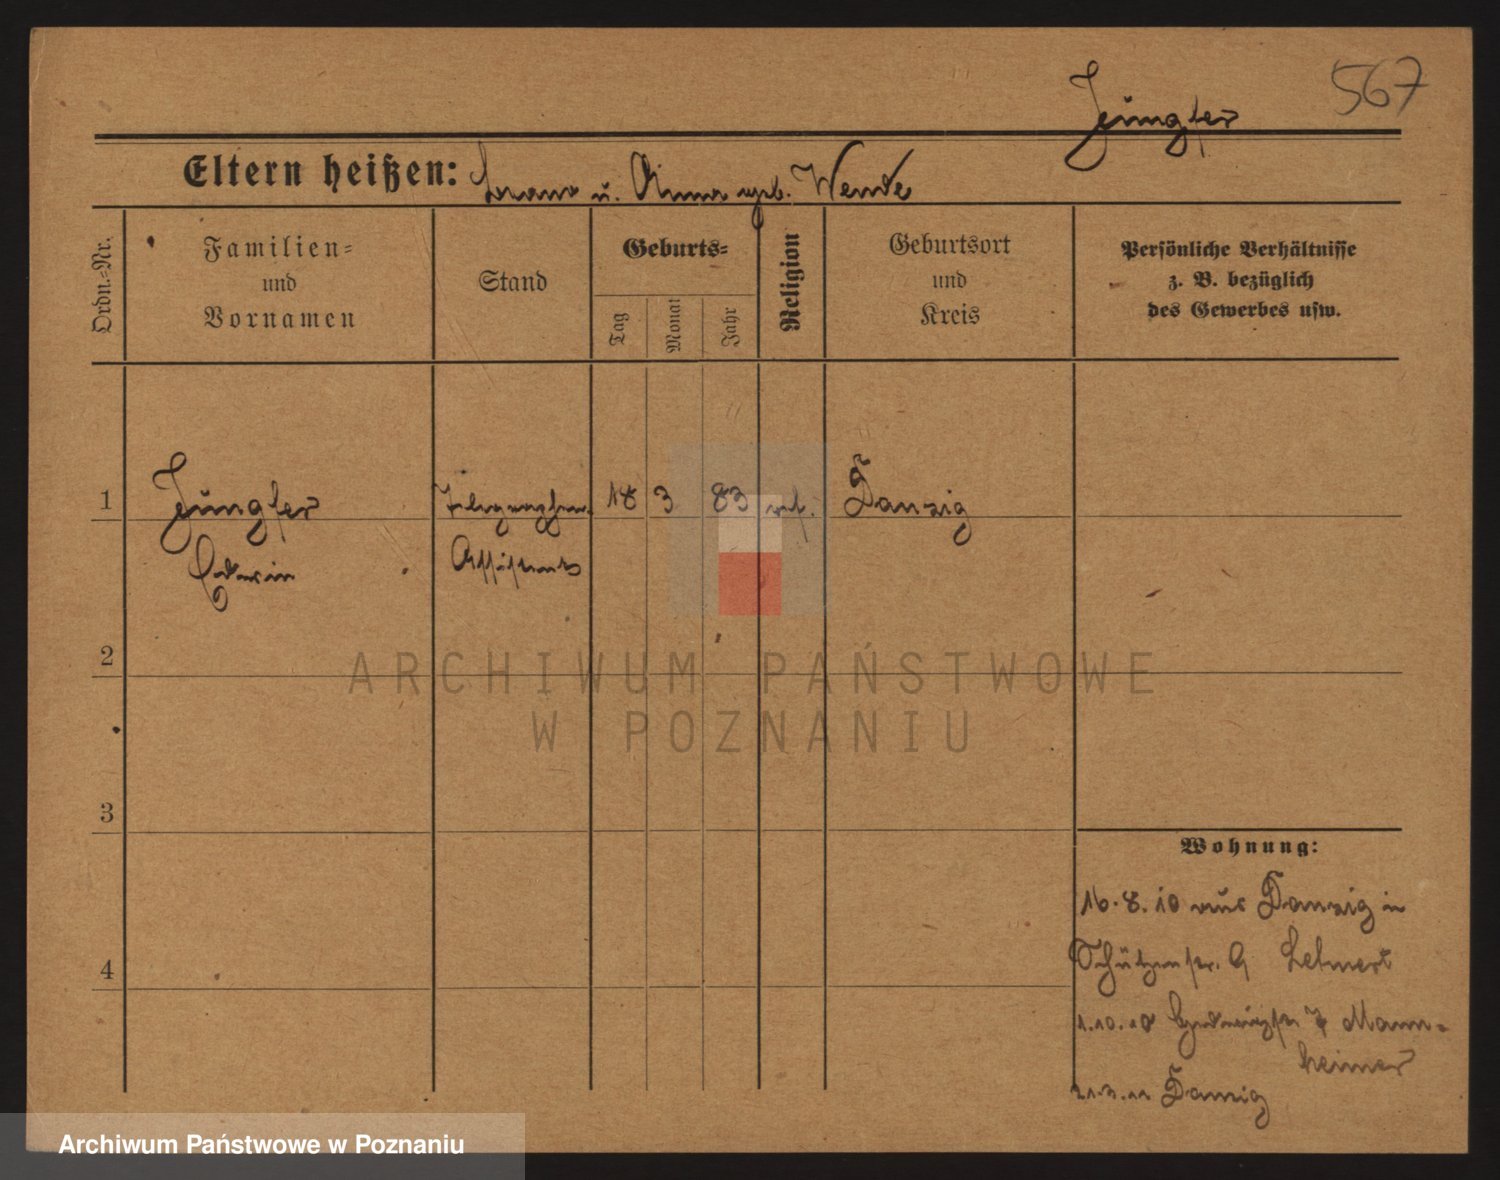 567
Jungfer
Eltern heißen: Franz u. Anna geb. Wende
Ordn.-Nr.
Familien-
und
Vornamen
Stand
Geburts-
Tag
Monat
Jahr
Religion
Geburtsort
und
Kreis
Persönliche Verhältnisse
z. B. bezüglich
des Gewerbes usw.
1 Jungfer Telegraphen 18 3 83 Danzig
Assistent
2
3
4
Wohnung:
16.8.10 aus Danzig in
Schützenstr. 9
1.10.10 7 Mann-
heimer
Danzig
ARCHIWUM PAŃSTWOWE
W POZNANIU
Archiwum Państwowe w Poznaniu